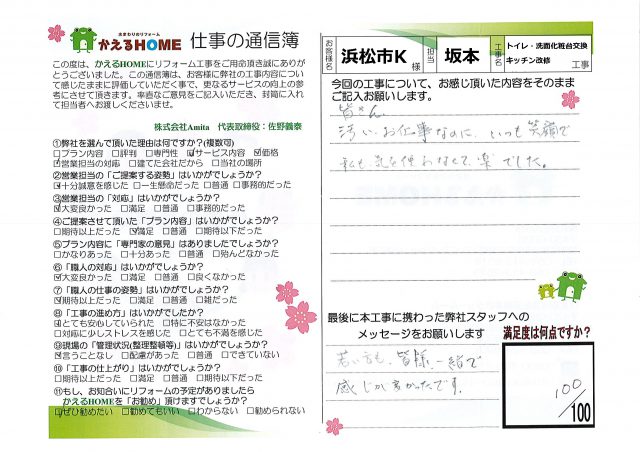 水まわりのリフォーム
かえるHOME 仕事の通信簿
この度は、かえるHOMEにリフォーム工事をご用命頂き誠にありが
とうございました。この通信簿は、お客様に弊社の工事内容につい
て感じたままに評価していただく事で、更なるサービスの向上の参
考にさせて頂きます。率直なご意見をご記入いただき、封筒に入れ
て担当者へお渡しくださいませ。
株式会社Amita 代表取締役：佐野義泰
①弊社を選んで頂いた理由は何ですか?(複数可)
□プラン内容 □評判 □専門性 ☑サービス内容 ☑価格
☑営業担当の対応 □建てた会社だから □当社の場所
②営業担当の「ご提案する姿勢」はいかがでしょうか?
☑十分誠意を感じた □一生懸命だった □普通 □事務的だった
③営業担当の「対応」はいかがでしょうか?
☑大変良かった □満足 □普通 □事務的だった
④ご提案させて頂いた「プラン内容」はいかがでしょうか?
□期待以上だった ☑満足 □普通 □期待以下だった
⑤プラン内容に「専門家の意見」はありましたでしょうか?
□かなりあった □十分あった □普通 □殆んどなかった
⑥「職人の対応」はいかがでしょうか?
☑大変良かった □満足 □普通 □良くなかった
⑦「職人の仕事の姿勢」はいかがでしょうか?
☑期待以上だった □満足 □普通 □雑だった
⑧「工事の進め方」はいかがでしたか?
☑とても安心していられた □特に不安はなかった
□対応に少しストレスを感じた □とても不満を感じた
⑨現場の「管理状況(整理整頓等)」はいかがでしょうか?
☑言うことなし □配慮があった □普通 □できていない
⑩「工事の仕上がり」はいかがでしょうか?
□期待以上だった □満足 □普通 □期待以下だった
⑪もし、お知合いにリフォームの予定がありましたら
かえるHOMEを「お勧め」頂けますでしょうか?
☑ぜひ勧めたい □勧めてもいい □わからない □勧められない
お客様名 浜松市K 様 担当 坂本 工事名 トイレ・洗面化粧台交換
キッチン改修 工事
今回の工事について、お感じ頂いた内容をそのまま
ご記入お願いします。
皆さん
汚いお仕事なのに、いつも笑顔で
私も気を使わなくて楽でした。
最後に本工事に携わった弊社スタッフへの
メッセージをお願いします
若い方も、皆様、一緒で
感じが良かったです。
満足度は何点ですか?
100
/100